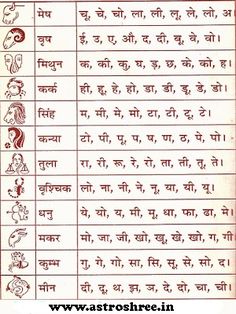 मेष चू. चे. चो. ला. ली. लू. ले. लो. अ.
वृष ई. उ. ए. औ. द. दी. वू. वे. वो।
मिथुन क. की. कु. घ. ड़. छ. के. को. ह।
कर्क ही. हू. हे. हो. डा. डी. डू. डे. डो।
सिंह म. मी. मे. मो. टा. टी. टू. टे।
कन्या टो. पी. पू. प. ष. ण. ठ. पे. पो।
तुला रा. री. रू. रे. रो. ता. ती. तू. ते।
वृश्चिक लो. ना. नी. ने. नू. या. यी. यू।
धनु ये. यो. य. मी. मू. धा. फा. ढा. मे।
मकर मो. जा. जी. खो. खू. खे. खो. ग. गी।
कुम्भ गु. गे. गो. सा. सि. सू. से. सो. द।
मीन दी. दू. थ. झ. ञ. दे. दो. चा. ची।
www.astroshree.in